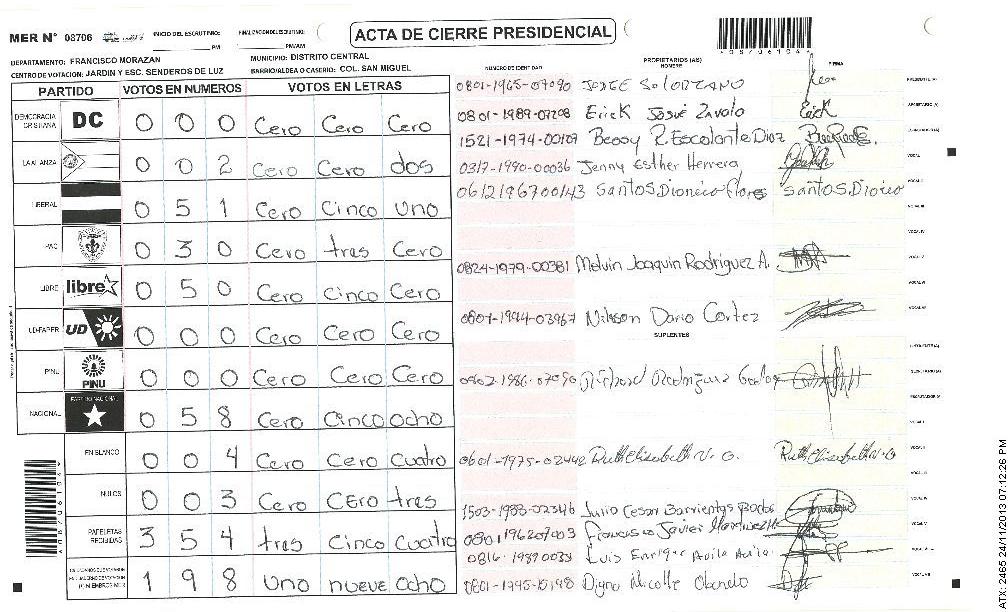 MER N° 08706
INICIO DEL ESCRUTINIO: PM
FINALIZACION DEL ESCRUTINIO: PM/AM
ACTA DE CIERRE PRESIDENCIAL
DEPARTAMENTO: FRANCISCO MORAZAN
MUNICIPIO: DISTRITO CENTRAL
CENTRO DE VOTACION: JARDIN Y ESC. SENDEROS DE LUZ
BARRIO/ALDEA O CASERIO: COL. SAN MIGUEL
PARTIDO VOTOS EN NUMEROS VOTOS EN LETRAS
DEMOCRACIA CRISTIANA DC 0 0 0 Cero Cero Cero
LA ALIANZA 0 0 2 Cero Cero dos
LIBERAL 0 5 1 Cero Cinco uno
PAC 0 3 0 Cero tres Cero
LIBRE libre 0 5 0 Cero Cinco Cero
UD-FAPER UD 0 0 0 Cero Cero Cero
PINU PINU 0 0 0 Cero Cero Cero
NACIONAL PARTIDO NACIONAL 0 5 8 Cero Cinco ocho
EN BLANCO 0 0 4 Cero Cero Cuatro
NULOS 0 0 3 Cero CEro tres
PAPELETAS RECIBIDAS 3 5 4 tres Cinco Cuatro
1 9 8 Uno nueve ocho
NUMERO DE IDENTIDAD PROPIETARIOS (AS) NOMBRE FIRMA
0801-1965-07090 JORGE SOLORZANO
0801-1989-07208 Erick Josué Zavala Erick
1521-1974-00109 Bessy R. Escalante Diaz
0317-1990-00036 Jenny Esther Herrera
0612196700143 Santos Dionicio Flores Santos Dionicio
0824-1979-00381 Melvin Joaquin Rodriguez A.
0801-1994-03967 Nilsson Dario Cortez
SUPLENTES
0902-1986-07090 Rodriguez
0601-1975-02442 Ruth Elisabeth V. G. Ruth Elisabeth V. G
1503-1983-02346 Julio Cesar Barrientos
0801196207003 Francisco Javier Martinez H
0816-19890039 Luis Enrique Avila Avila
Digna Nicolle Obando
ATX 2465 24/11/2013 07:12:26 PM